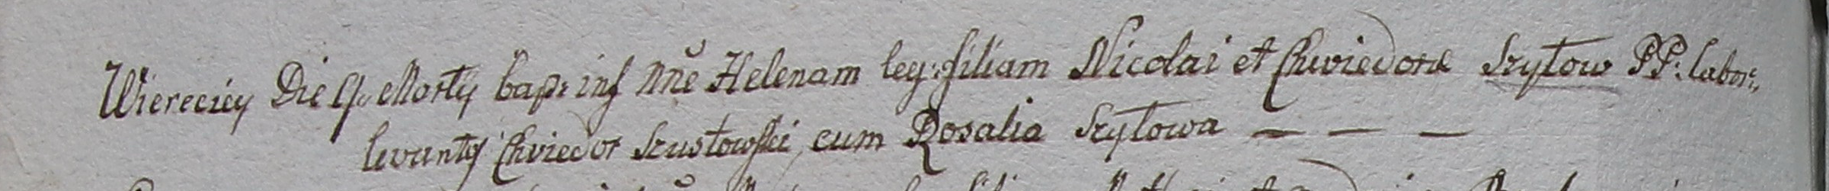 Wiereciey Die 9. Martij bap: inf nne Helenam leg: filiam Nicolai et Chwiedorae Szyłow PP: labor:,
levantij Chwiedor Szustowski, cum Rosalia Szyłowa — — —